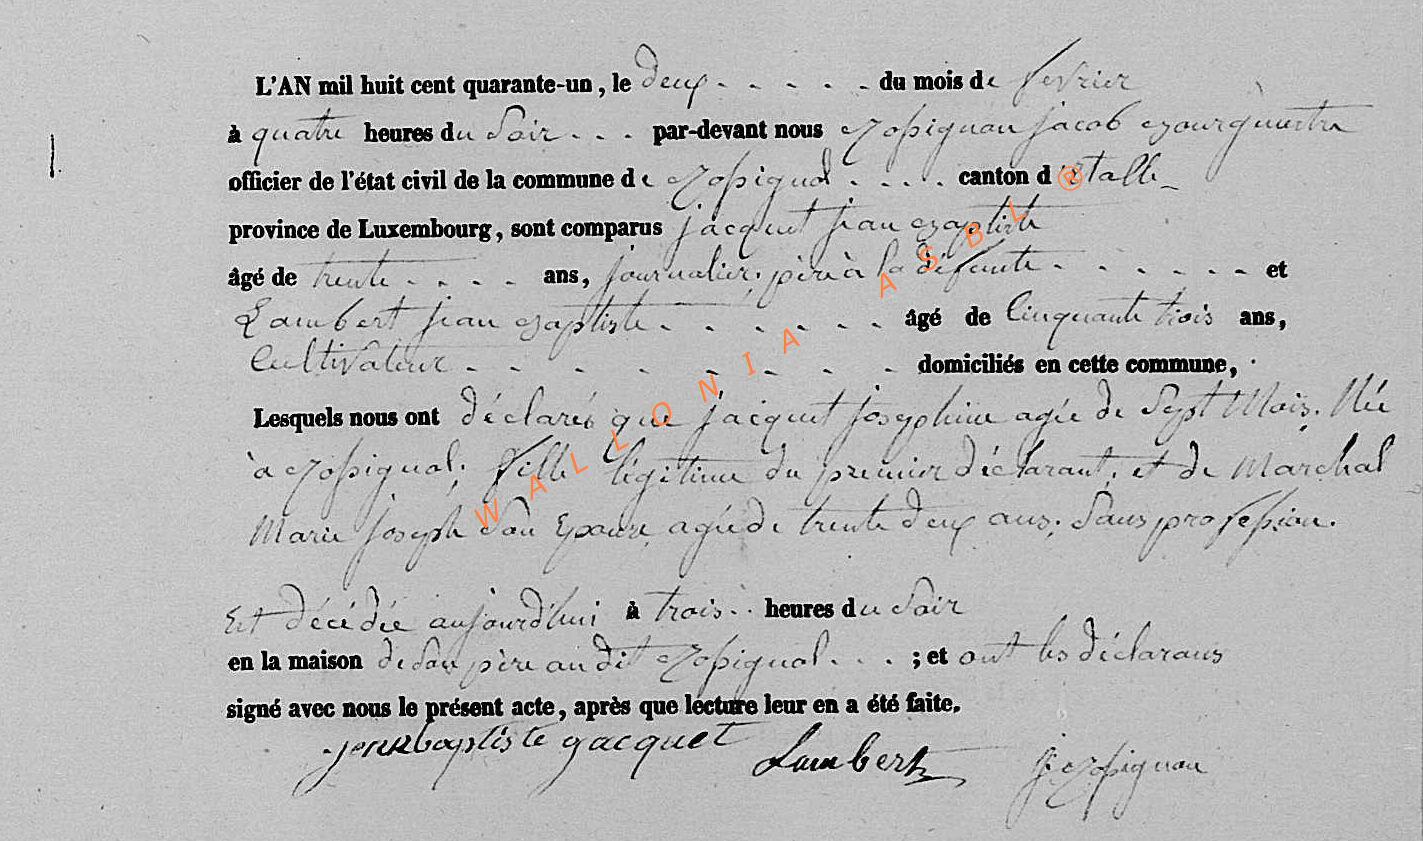 L'AN mil huit cent quarante-un, le deux . . . . . du mois de fevrier
à quatre heures du Soir . . . par-devant nous Rossignon jacob Bourgmestre
officier de l'état civil de la commune de Rossignol . . . . canton d'Etalle
province de Luxembourg, sont comparus jacquet jean Baptiste
âgé de trente . . . . ans, journalier, père à la défunte . . . . . . et
Lambert jean Baptiste . . . . . . âgé de Cinquante trois ans,
Cultivateur . . . . . . . . domiciliés en cette commune,
Lesquels nous ont déclarés que jacquet josephine agée de Sept Mois, Née
à Rossignol, fille légitime du premier déclarant, et de Marchal
Marie joseph Son Epouse agée de trente deux ans, Sans profession.
Est décédée aujourd'hui à trois . . heures du Soir
en la maison de Son père au dit Rossignol . . . ; et ont les déclarans
signé avec nous le présent acte, après que lecture leur en a été faite.
jean baptiste gacquet Lambert j. Rossignon
WALLONIA ASBL ®
1.